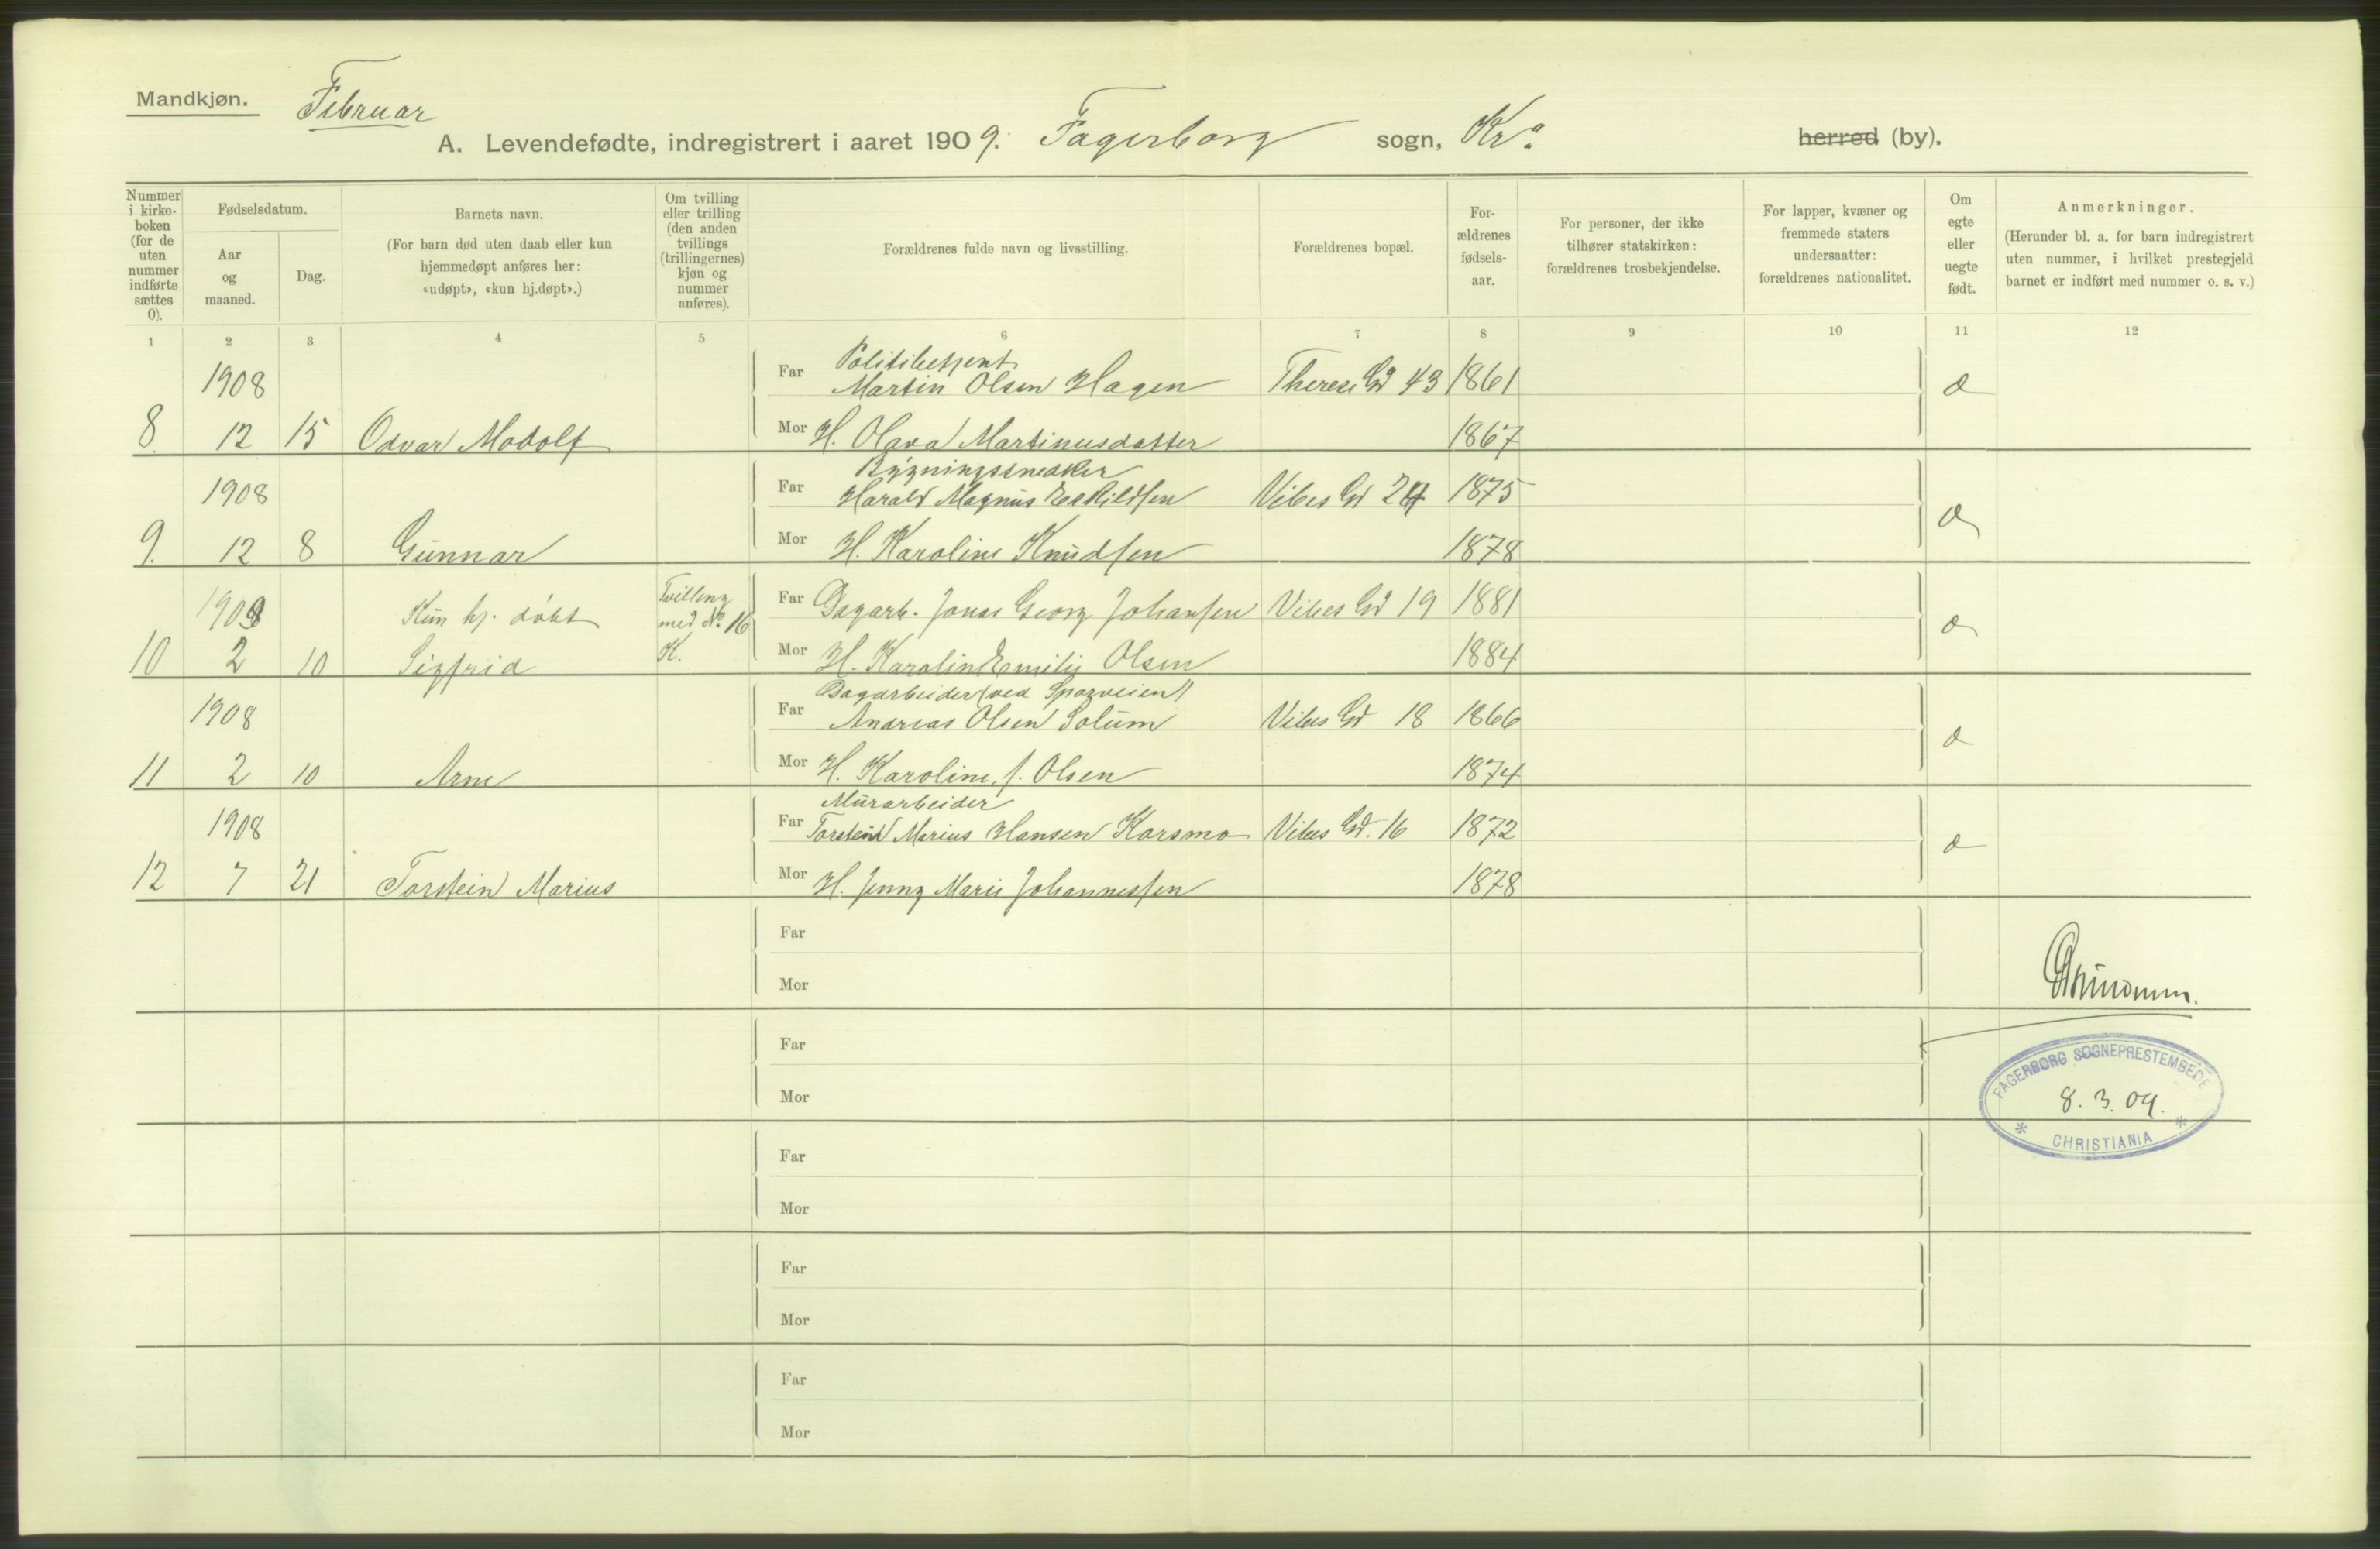 Mandkjøn.
Februar
A. Levendefødte, indregistrert i aaret 1909. Fagerborg sogn, Kra. herred (by).
Nummer i kirke- boken (for de uten nummer indførte sættes 0).
Fødselsdatum.
Aar og maaned.
Dag.
Barnets navn.
(For barn død uten daab eller kun hjemmedøpt anføres her: «udøpt», «kun hj.døpt».)
Om tvilling eller trilling (den anden tvillings (trillingernes) kjøn og nummer anføres).
Forældrenes fulde navn og livsstilling.
Forældrenes bopæl.
For- ældrenes fødsels- aar.
For personer, der ikke tilhører statskirken: forældrenes trosbekjendelse.
For lapper, kvæner og fremmede staters undersaatter: forældrenes nationalitet.
Om egte eller uegte født.
Anmerkninger.
(Herunder bl. a. for barn indregistrert uten nummer, i hvilket prestegjeld barnet er indført med nummer o. s. v.)
1 2 3 4 5 6 7 8 9 10 11 12
1908 Far Politibetjent
Martin Olsen Hagen Therese Gd 43 1861 e
8. 12 15 Odvar Modolf Mor H. Olava Martinusdatter 1867
1908 Far Bygningssnedker
Harald Magnus Eskildsen Vibes Gd 24 1875 e
9. 12 8 Gunnar Mor H. Karoline Knudsen 1878
1909 Kun hj. døbt Tvilling med No. 16 K. Far Dagarb. Jonas Georg Johansen Vibes Gd 19 1881 e
10 2 10 Sigfrid Mor H. Karolin Emilie Olsen 1884
1908 Far Dagarbeider (ved Sporveien)
Andreas Olsen Solum Vibes Gd 18 1866 e
11 2 10 Arne Mor H. Karoline, f. Olsen 1874
1908 Far Murarbeider
Torstein Marius Hansen Korsmo Vibes Gd. 16 1872 e
12 7 21 Torstein Marius Mor H. Jenny Marie Johannessen 1878
Far
Mor
Far
Mor
FAGERBORG SOGNEPRESTEMBEDE
8. 3. 09.
* CHRISTIANIA *
Far
Mor
Far
Mor
Far
Mor